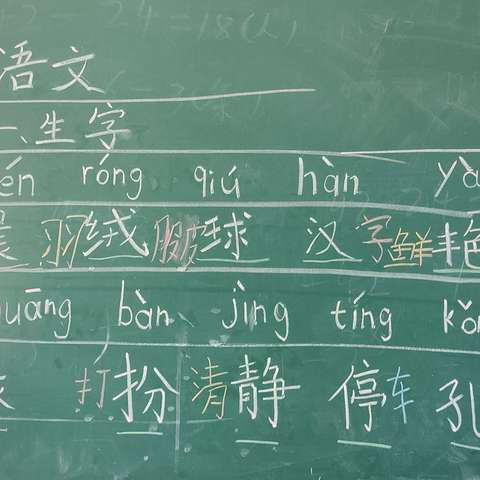 语文
一、生字
én róng qiú hàn yà
晨 羽绒 球 汉字鲜艳
uāng bàn jìng tíng kǒ
打扮 清静 停车 孔